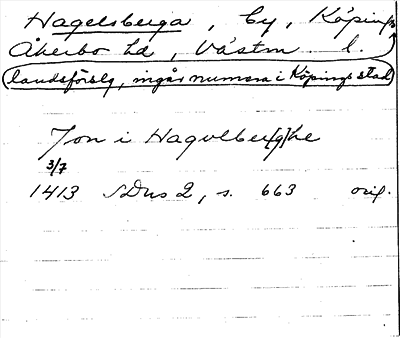 Hagelsberga, by, Köpings
Åkerbo hd, Västm. l.
landsförslg, ingår numera i Köpings stad
Jon i Hagelber(g)he
3/7
1413 SDns 2, s. 663 orig.